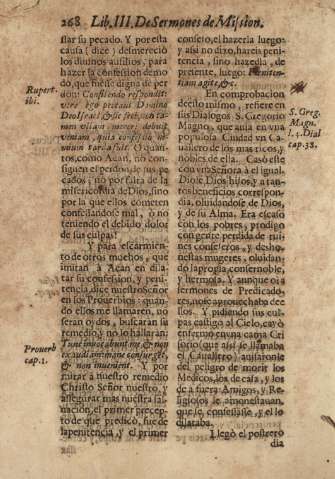 268 Lib. III. De Sermones de Mission.
ſtar ſu pecado. Y por eſta
cauſa (dice) deſmereciò
los divinos auſilios, para
hazer la confeſſion demo
do, que fueſſe digna de per
don: Confitendo reſpondit:
vere ego peccavi Domino
Deo Iſrael, &
veniam, quia confeſſio
Y
tos, como Acàn, no conſi
guen el perdon de ſus pe
cados, no por falta de la
miſericordia de Dios, ſino
por la que ellos cometen
confeſſandoſe mal, ò no
teniendo el debido dolor
de ſus culpas!
Y para eſcarmien
to de otros muchos, que
imitan à Acàn en dila
tar ſu confeſſion, y peni
tencia, dice nueſtro Señor
en los Proverbios: quan
do ellos me llamaren, no
ſeràn oydos, buſcaràn ſu
remedio, y no lo hallaràn:
Tunc invocabunt me, & non
exaudiam: mane conſurget,
& non invenient. Y por
imitar à nueſtro remedio
Chriſto Señor nueſtro, y
aſſegurar mas nueſtra ſal
vacion, el primer precep
to de que predicò, fue de
la penitencia, y el primer
Rupert.
ibi.
Prouerb
cap. 1.
conſejo, el hazerla luego:
y aſsi no dixo, hareis peni
tencia, ſino hazedla, de
preſente, luego: Pæniten-
tiam agite, &c.
En comprobacion
de eſto miſmo, refiere en
ſus Dialogos S. Gregorio
Magno, que avia en vna
populoſa Ciudad vn Ca-
vallero de los mas ricos, y
nobles de ella. Casò eſte
con vna Señora à el igual.
Diòle Dios hijos, y à tan
tos beneficios correſpon-
dia, olvidandoſe de Dios,
y de ſu Alma. Era eſcaſo
con los pobres, prodigo
con gente perdida de rui-
nes conſejeros, y desho-
neſtas mugeres, olvidan-
do la propria, con ſer noble,
y hermoſa. Y aunque oìa
Sermones de Predicado-
res, no ſe aprovechaba de e
llos. Y pidiendo ſus cul-
pas caſtigo al Cielo, cayò
enfermo en vna cama Cri
ſorio (que aſsi ſe llamaba
el Cavallero) auiſaronle
del peligro de morir los
Medicos, los de caſa, y los
de à fuera Amigos, y Re-
ligioſos le amoneſtavan,
que ſe confeſſaſſe, y el lo
dilataba.
Llegò el poſtrero
dia
S. Greg.
Magn.
l. 4. Dial
cap. 38.